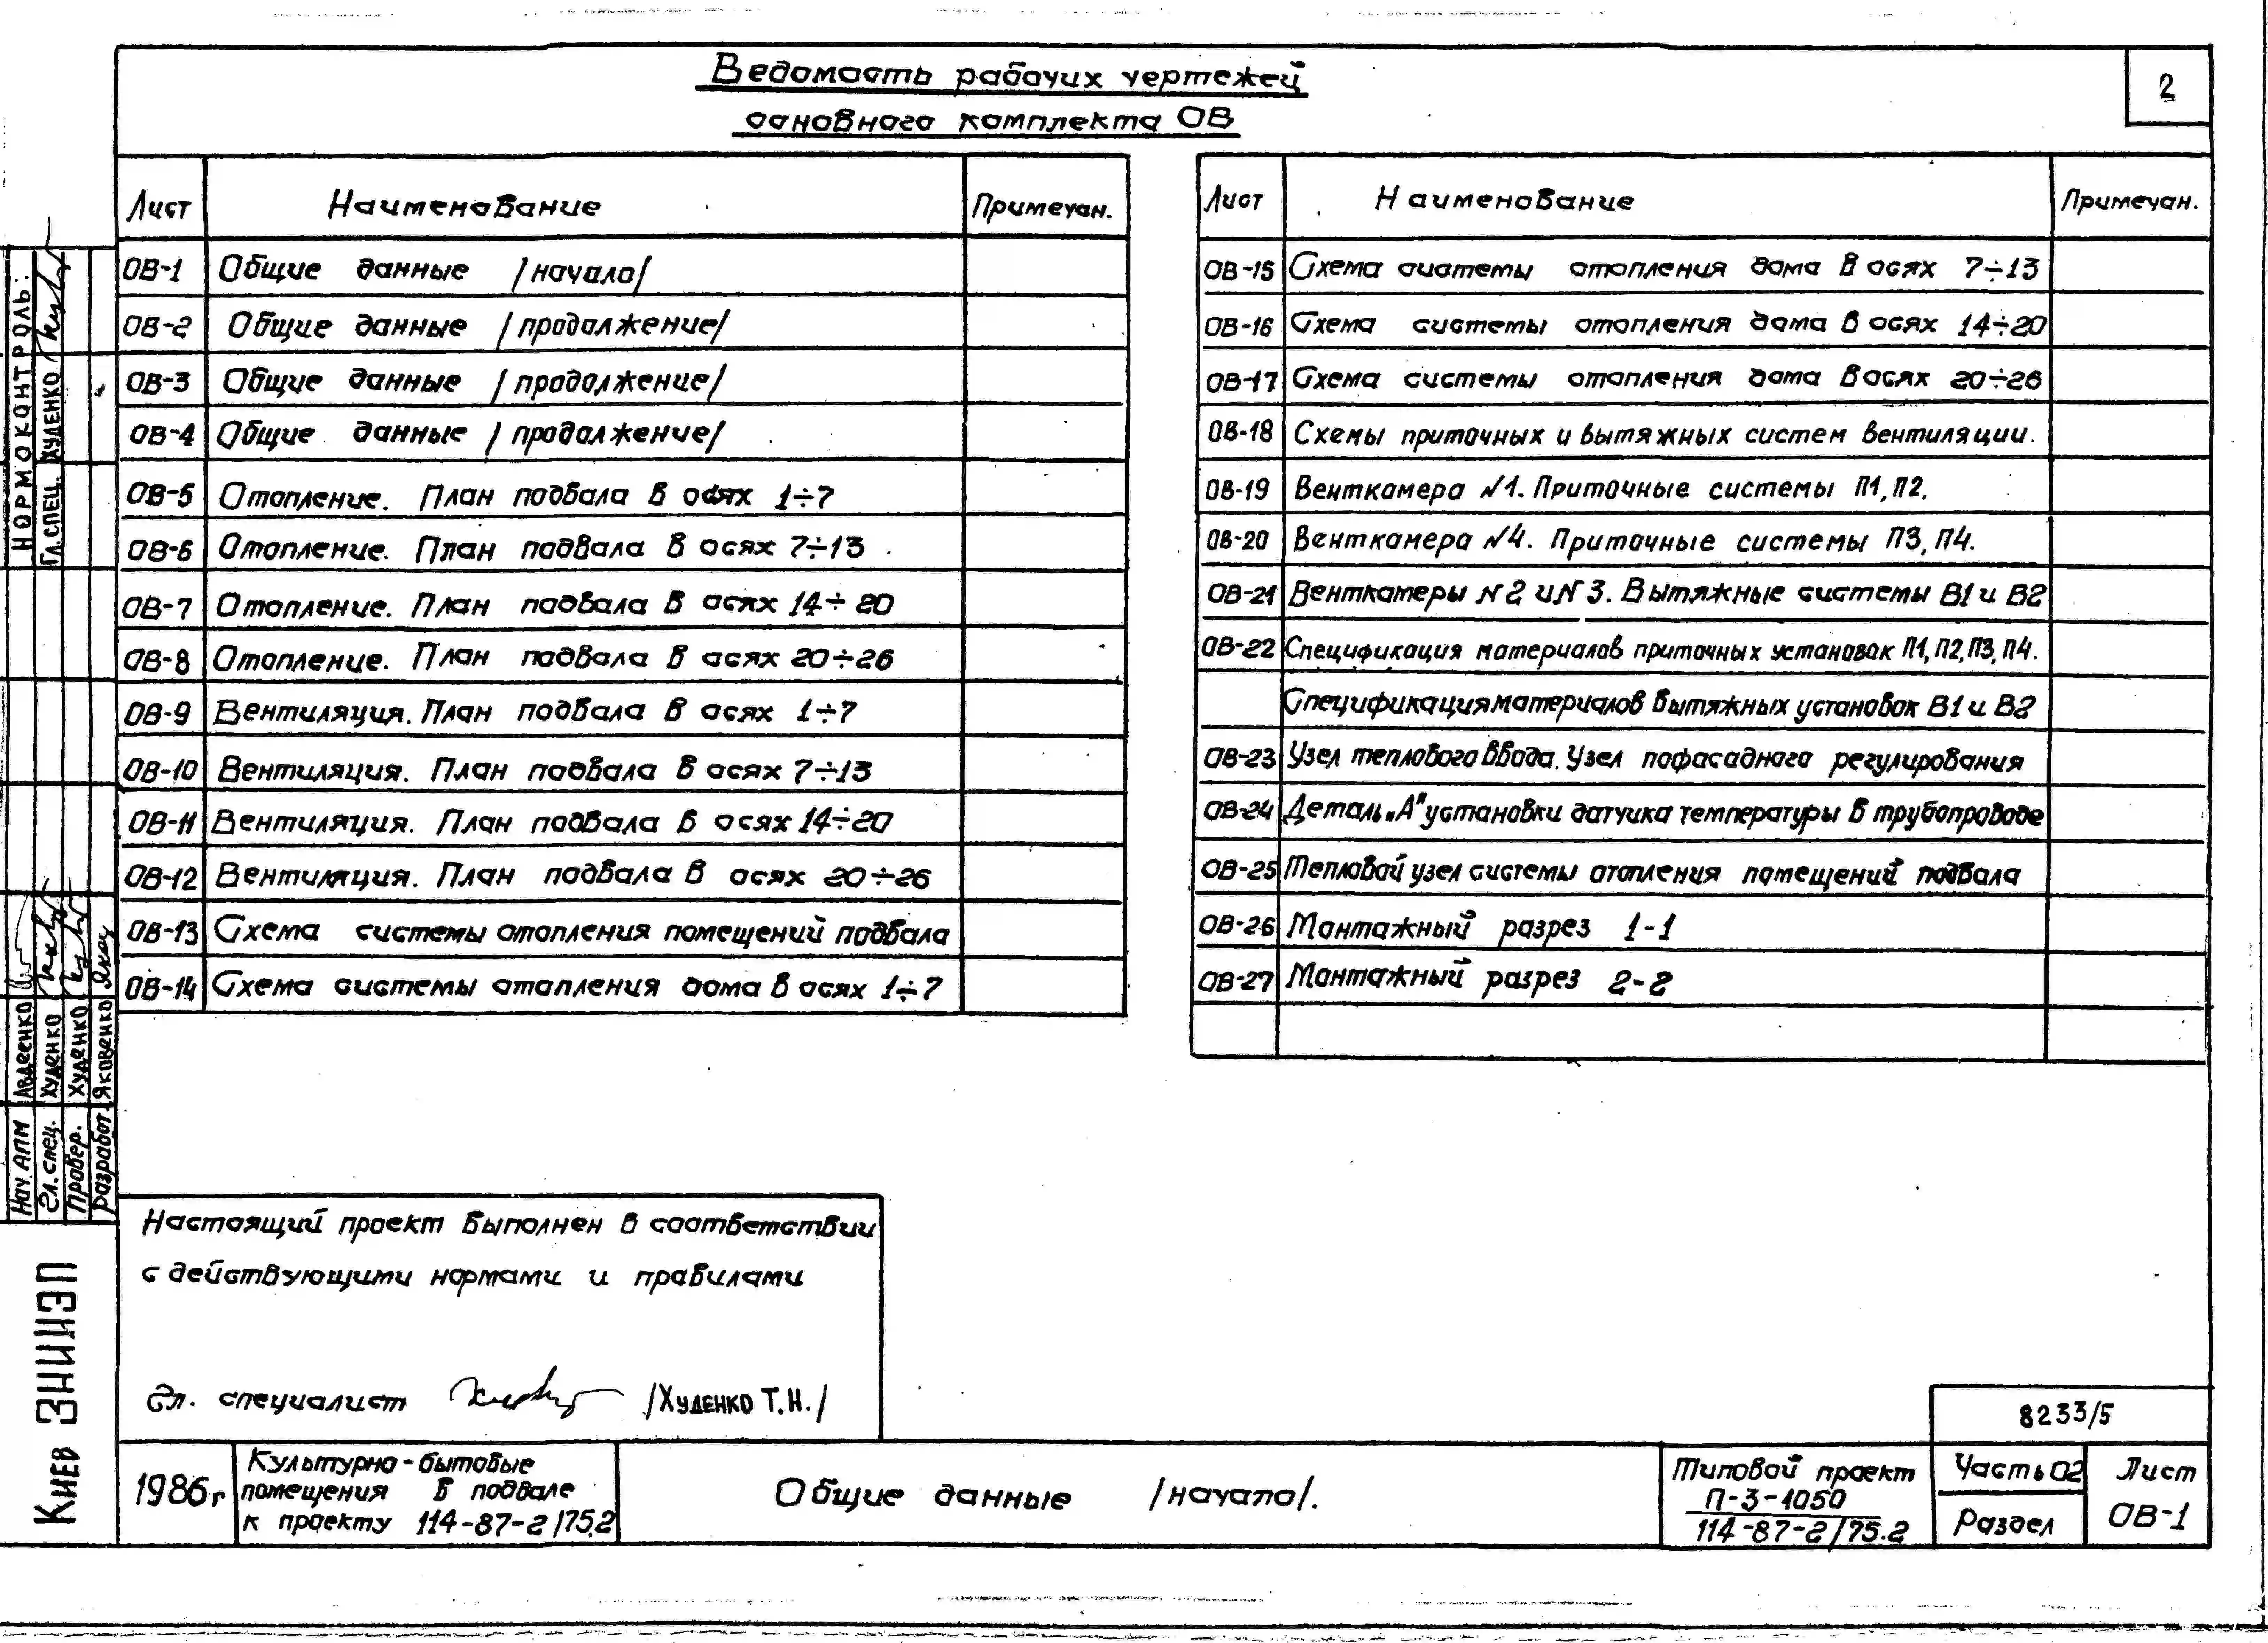 Ведомость рабочих чертежей
основного комплекта ОВ
2
Лист Наименование Примечан.
ОВ-1 Общие данные /начало/
ОВ-2 Общие данные /продолжение/
ОВ-3 Общие данные /продолжение/
ОВ-4 Общие данные /продолжение/
ОВ-5 Отопление. План подвала в осях 1÷7
ОВ-6 Отопление. План подвала в осях 7÷13
ОВ-7 Отопление. План подвала в осях 14÷20
ОВ-8 Отопление. План подвала в осях 20÷26
ОВ-9 Вентиляция. План подвала в осях 1÷7
ОВ-10 Вентиляция. План подвала в осях 7÷13
ОВ-11 Вентиляция. План подвала в осях 14÷20
ОВ-12 Вентиляция. План подвала в осях 20÷26
ОВ-13 Схема системы отопления помещений подвала
ОВ-14 Схема системы отопления дома в осях 1÷7
Лист Наименование Примечан.
ОВ-15 Схема системы отопления дома в осях 7÷13
ОВ-16 Схема системы отопления дома в осях 14÷20
ОВ-17 Схема системы отопления дома в осях 20÷26
ОВ-18 Схемы приточных и вытяжных систем вентиляции.
ОВ-19 Венткамера №1. Приточные системы П1, П2.
ОВ-20 Венткамера №4. Приточные системы П3, П4.
ОВ-21 Венткамеры №2 и №3. Вытяжные системы В1 и В2
ОВ-22 Спецификация материалов приточных установок П1, П2, П3, П4.
Спецификация материалов вытяжных установок В1 и В2
ОВ-23 Узел теплового ввода. Узел пофасадного регулирования
ОВ-24 Деталь „А" установки датчика температуры в трубопроводе
ОВ-25 Тепловой узел системы отопления помещений подвала
ОВ-26 Монтажный разрез 1-1
ОВ-27 Монтажный разрез 2-2
Настоящий проект выполнен в соответствии
с действующими нормами и правилами
Гл. специалист /Худенко Т.Н./
8233/5
1986г
Культурно-бытовые
помещения в подвале
к проекту 114-87-2/75.2
Общие данные /начало/.
Типовой проект
П-3-1050
114-87-2/75.2
Часть 02
Раздел
Лист
ОВ-1
НОРМОКОНТРОЛЬ:
Гл. СПЕЦ. ХУДЕНКО
Нач. АПМ Авдеенко
Гл. спец. Худенко
Провер. Худенко
Разработ. Яковенко
Киев ЗНИИЭП